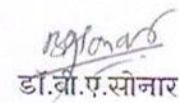 डॉ.बी.ए.सोनार